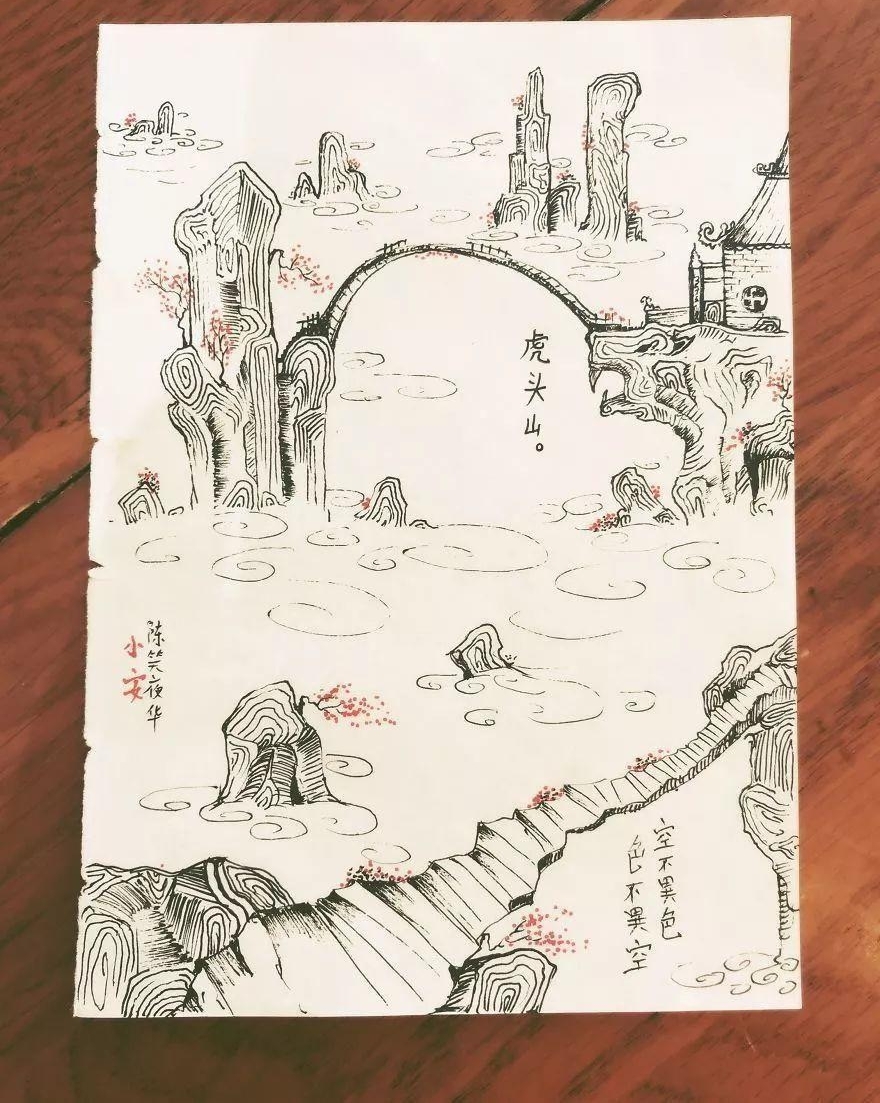 虎头山。
空不異色
色不異空
陈笑夜华
小安